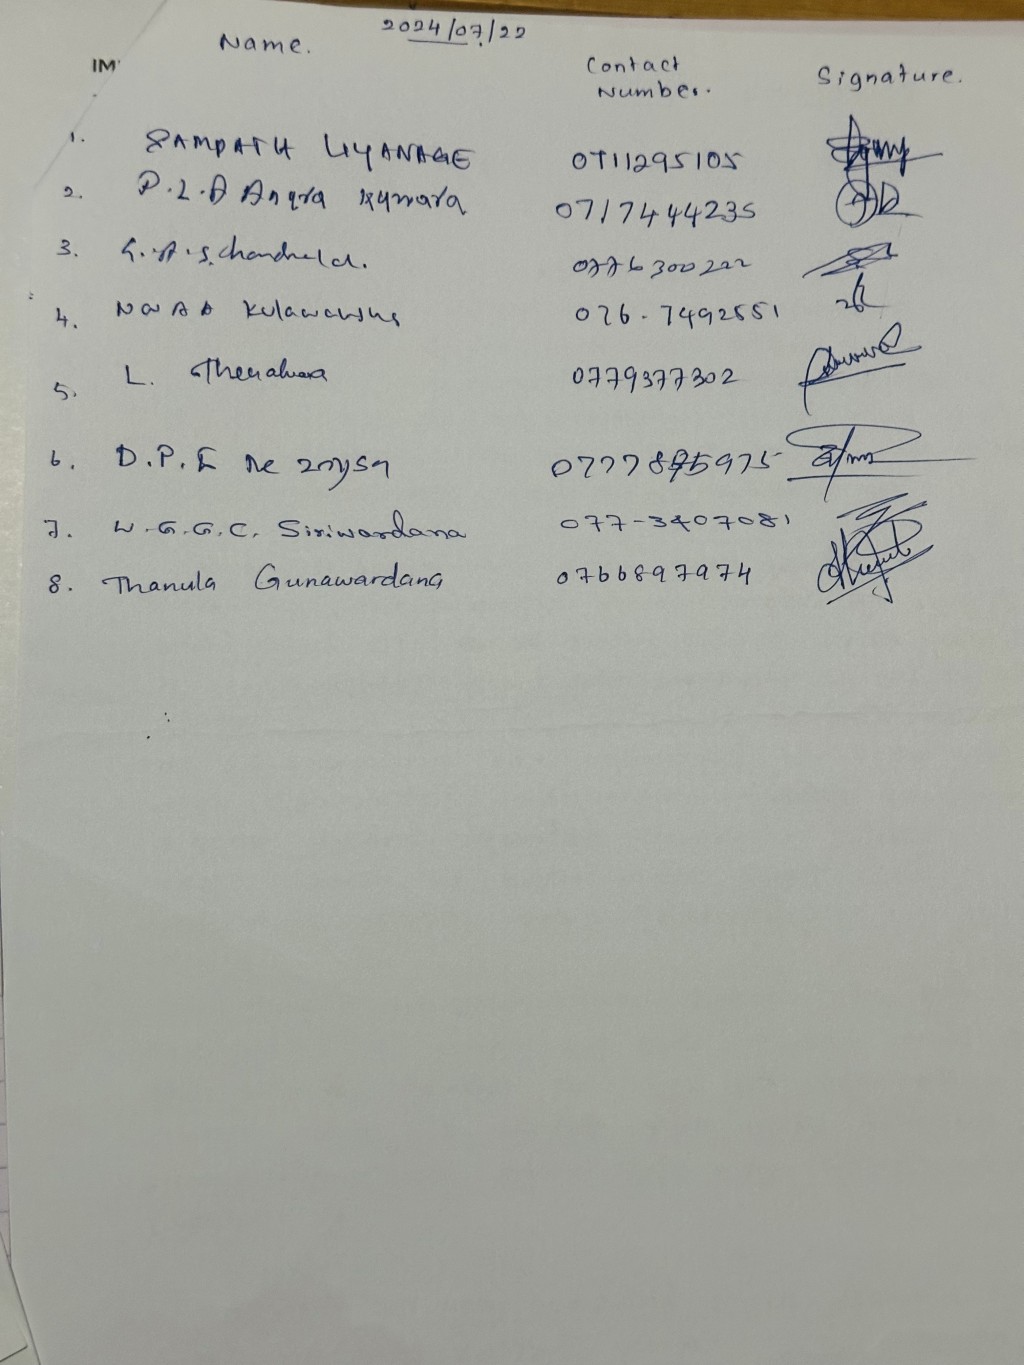 2024/07/22
Name.
IM
Contact Number.
Signature.
1. SAMPATH LIYANAGE 0711295105
2. P.L.A Anura Kumara 0717444235
3. G.A.S. 0776300222
4. Kulawansha 076-7492551
5. L. 0779377302
6. D.P.E De zoysa 0777895975
7. W.G.G.C. Siriwardana 077-3407081
8. Thanula Gunawardana 0766897974